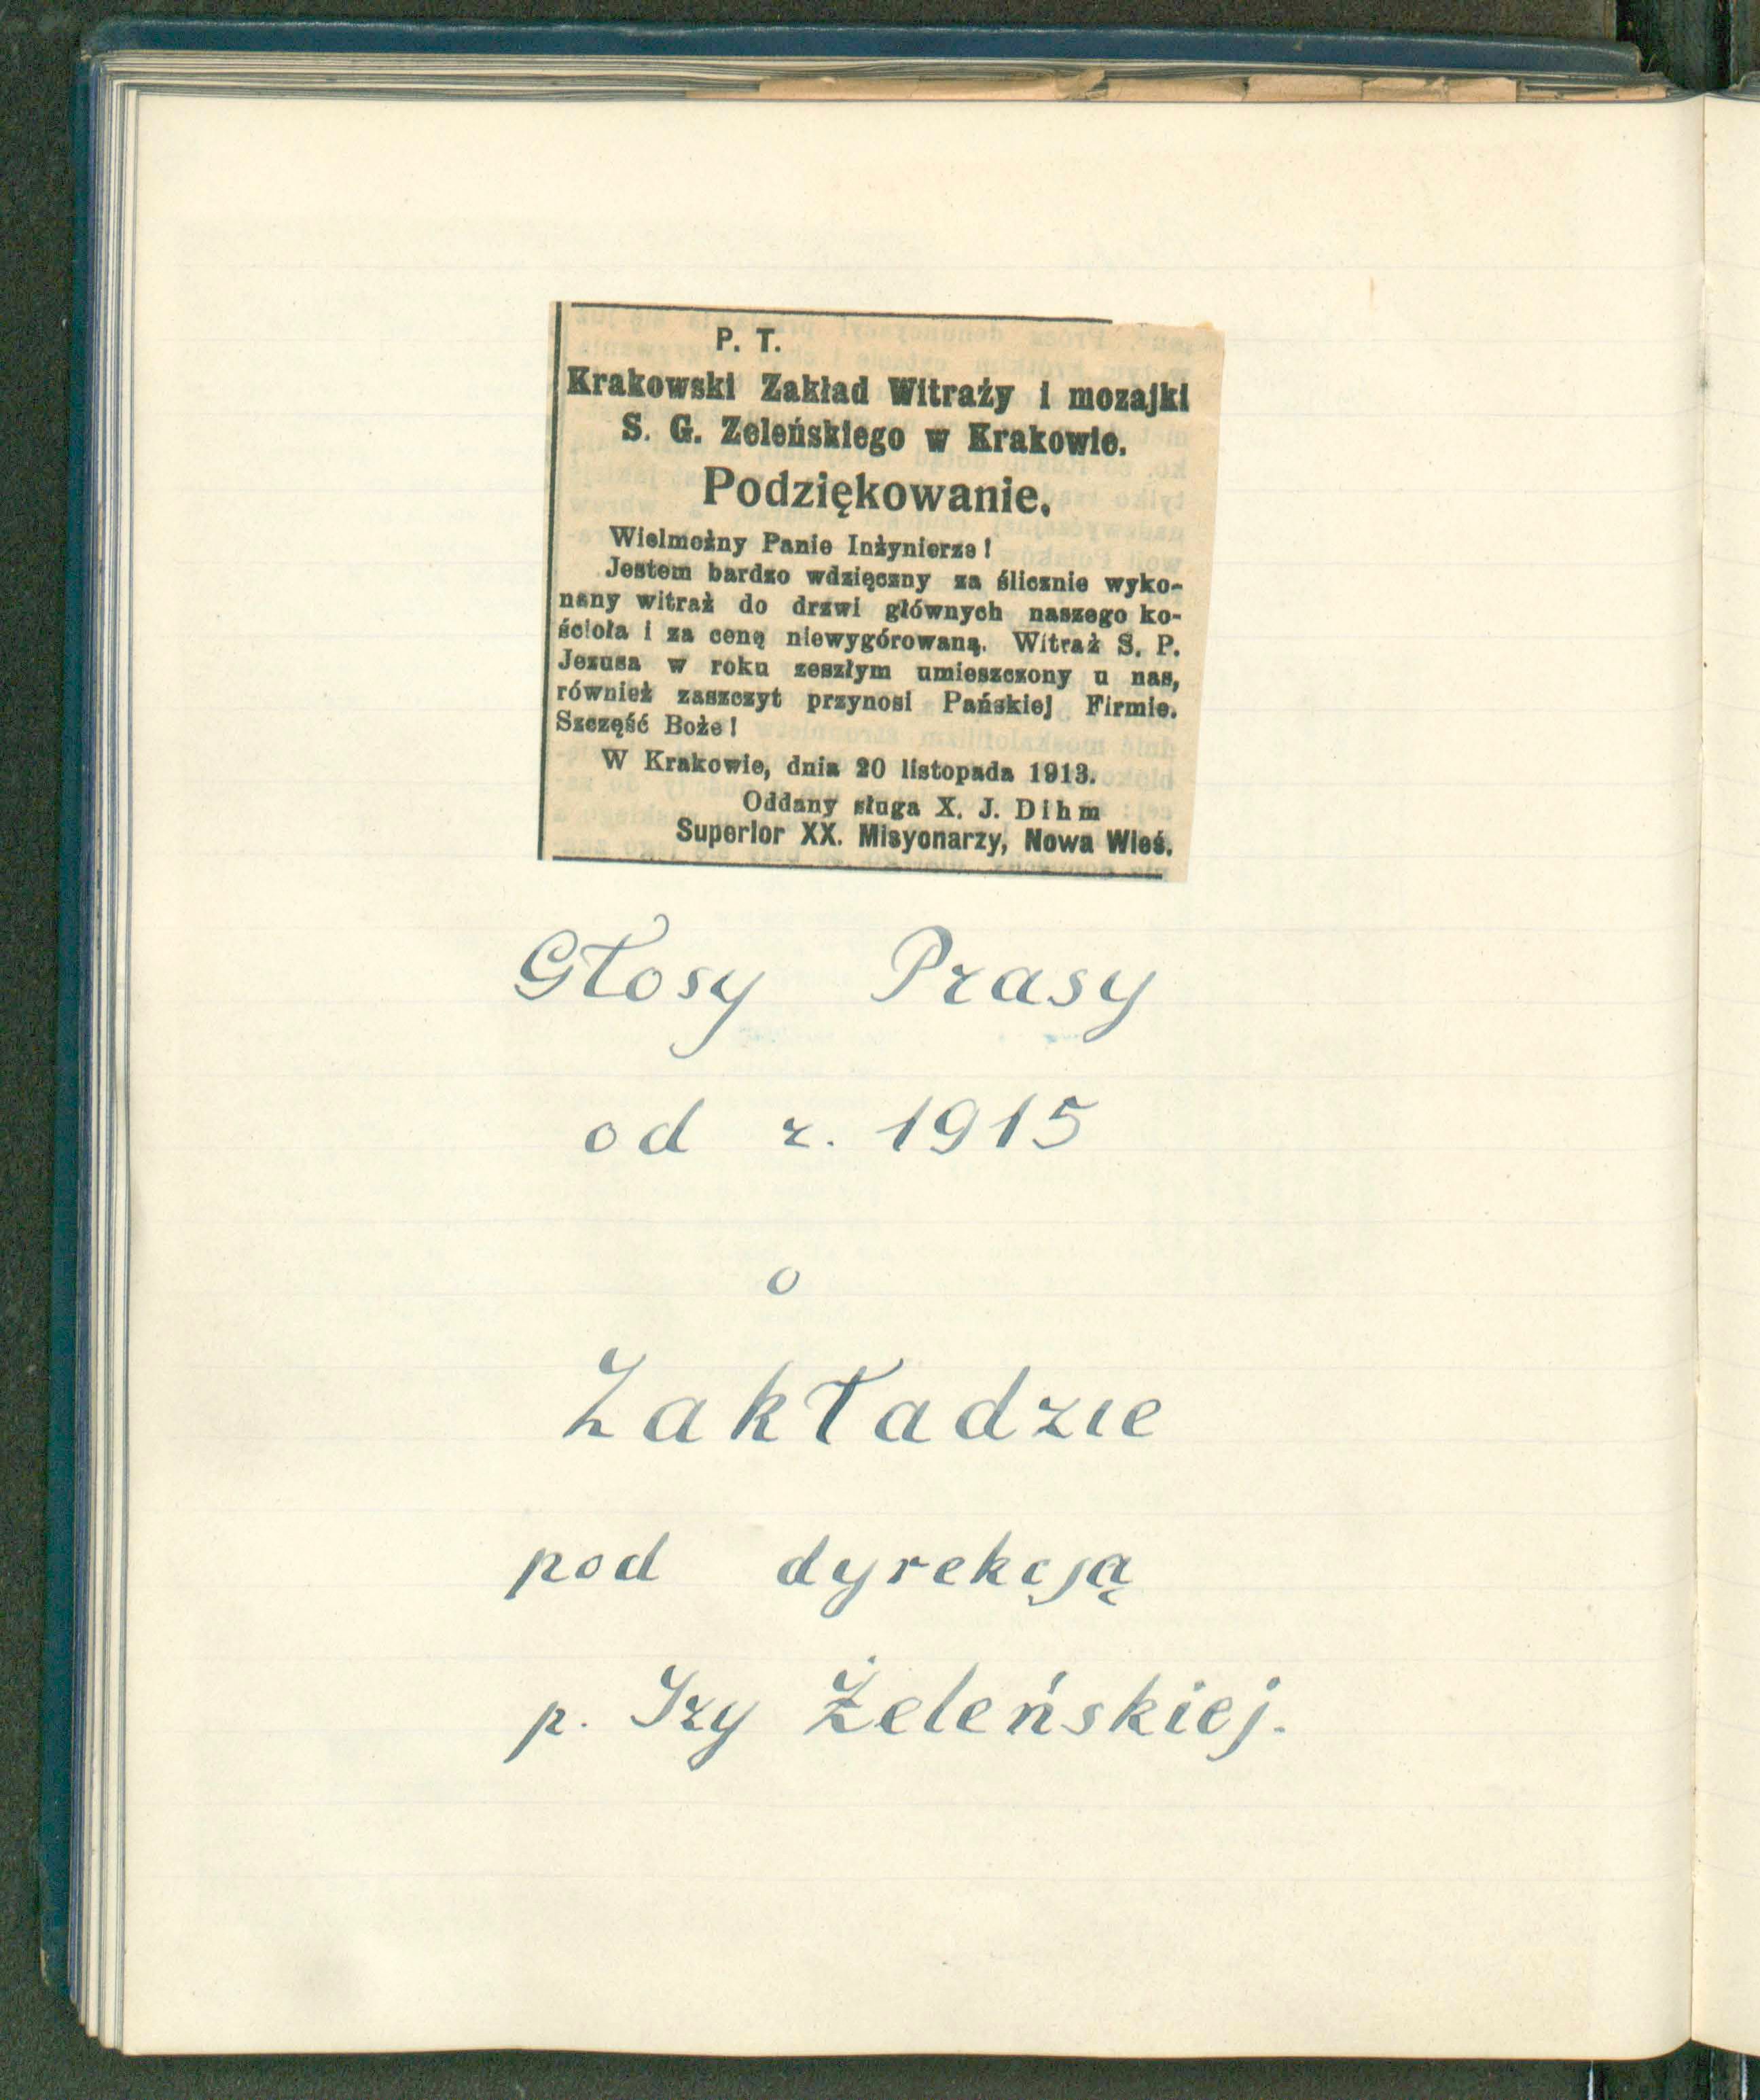 P. T.
Krakowski Zakład Witraży i mozajki
S. G. Zeleńskiego w Krakowie.
Podziękowanie.
Wielmożny Panie Inżynierze!
Jestem bardzo wdzięczny za ślicznie wyko-
nany witraż do drzwi głównych naszego ko-
ścioła i za cenę niewygórowaną. Witraż S. P.
Jezusa w roku zeszłym umieszczony u nas,
również zaszczyt przynosi Pańskiej Firmie.
Szczęść Boże!
W Krakowie, dnia 20 listopada 1913.
Oddany sługa X. J. Dihm
Superior XX. Misyonarzy, Nowa Wieś.
Głosy Prasy
od r. 1915
o
Zakładzie
pod dyrekcją
p. Izy Żeleńskiej.